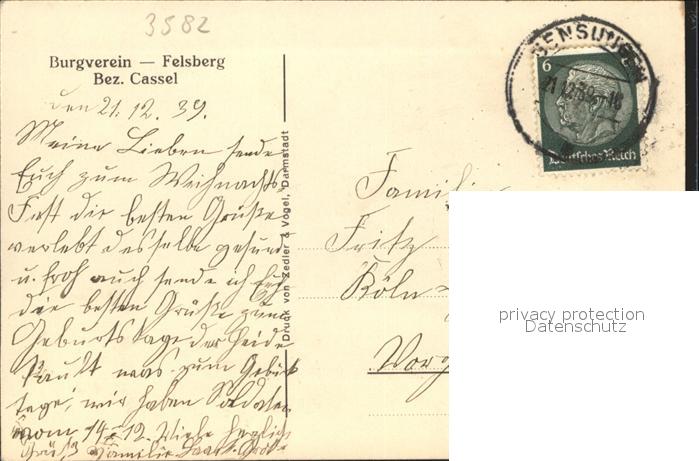 3582
Burgverein — Felsberg
Bez. Cassel
den 21.12.39.
Meine Lieben sende
Euch zum Weihnachts
Fest die besten Grüße
verlebt dasselbe gesund
u. froh auch sende ich Euch
die besten Grüße zum
Geburtstage der Heide
kauft was zum Geburts
tage, wir haben Soldaten
vom 14-12. Viele herzliche
Grüße Familie
Druck von Zedler & Vogel, Darmstadt
GENSUNGEN
21.12.39-18
6
Deutsches Reich
Familie
Fritz
Köln-
privacy protection
Datenschutz